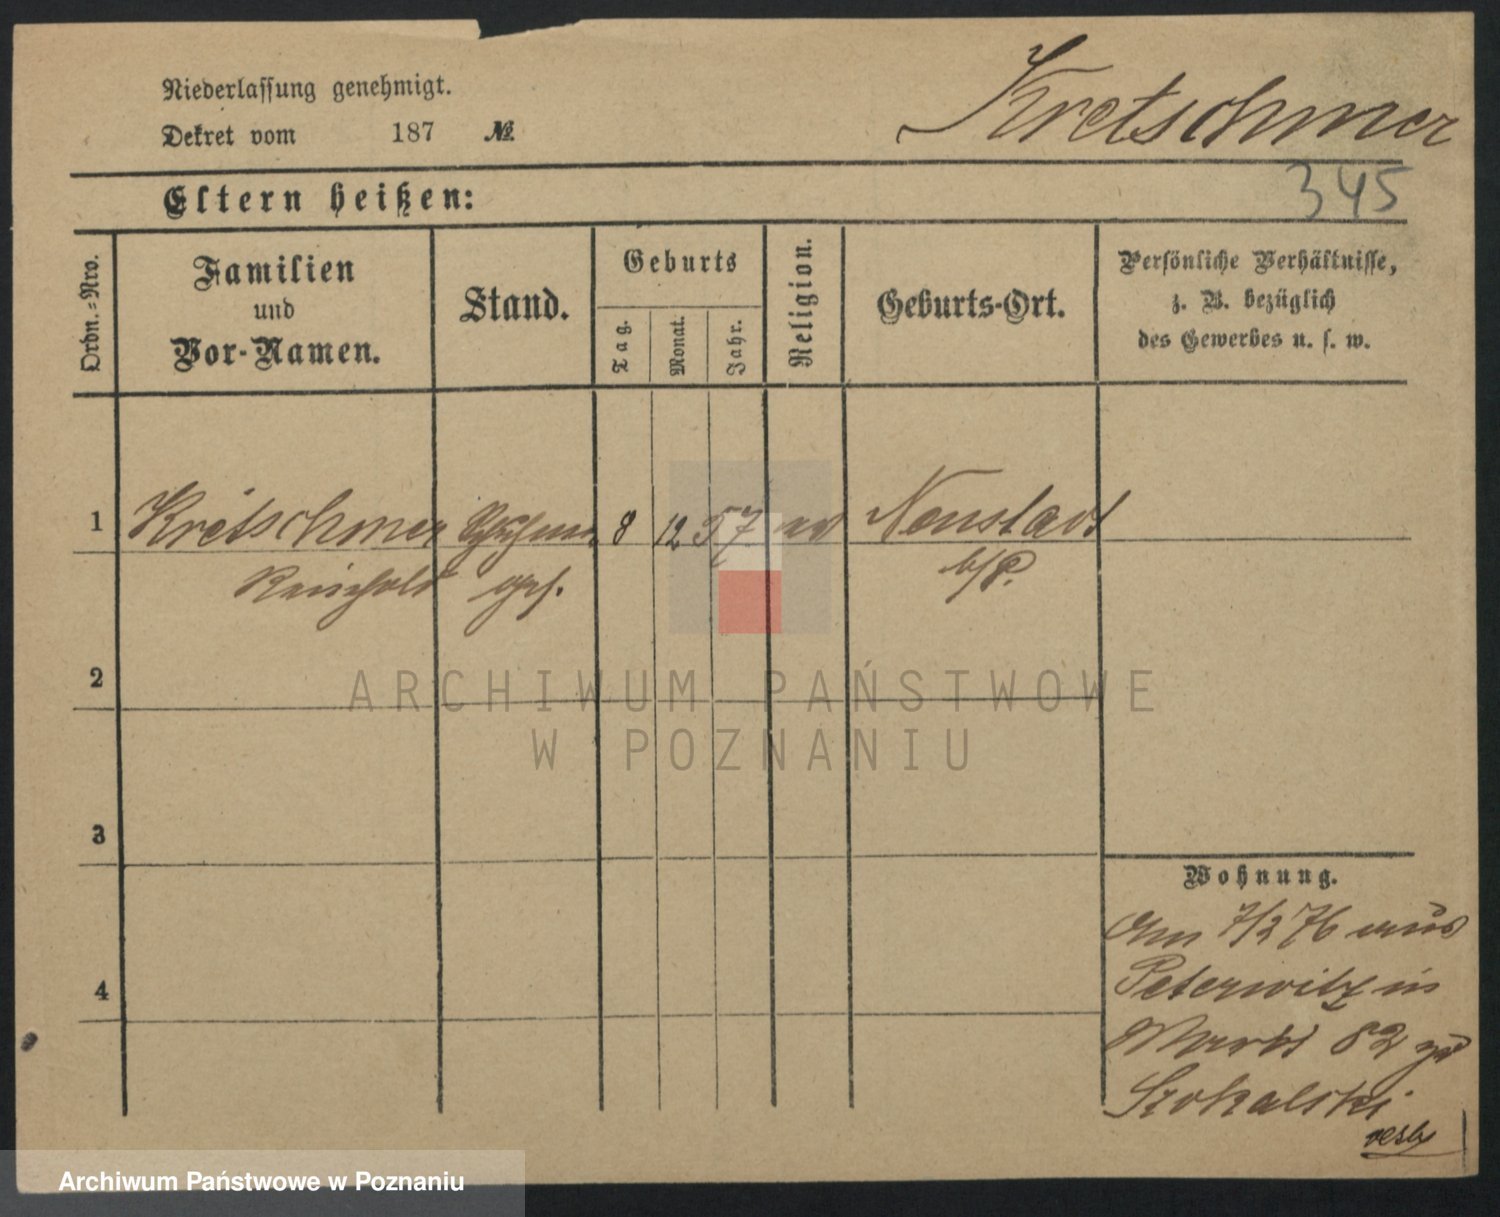 Niederlassung genehmigt.
Dekret vom 187 №
Kretschmer
345
Eltern heißen:
Ordn.-Nro.
Familien
und
Vor-Namen.
Stand.
Geburts
Tag.
Monat.
Jahr.
Religion.
Geburts-Ort.
Persönliche Verhältnisse,
z. B. bezüglich
des Gewerbes u. s. w.
1 Kretschmer 8 12 57 ev Neustadt
Reinhold b/P.
2
3
4
Wohnung.
Am 7/2 76 aus
Peterwitz in
Markt 82 zu
Szokalski
ARCHIWUM PAŃSTWOWE
W POZNANIU
Archiwum Państwowe w Poznaniu